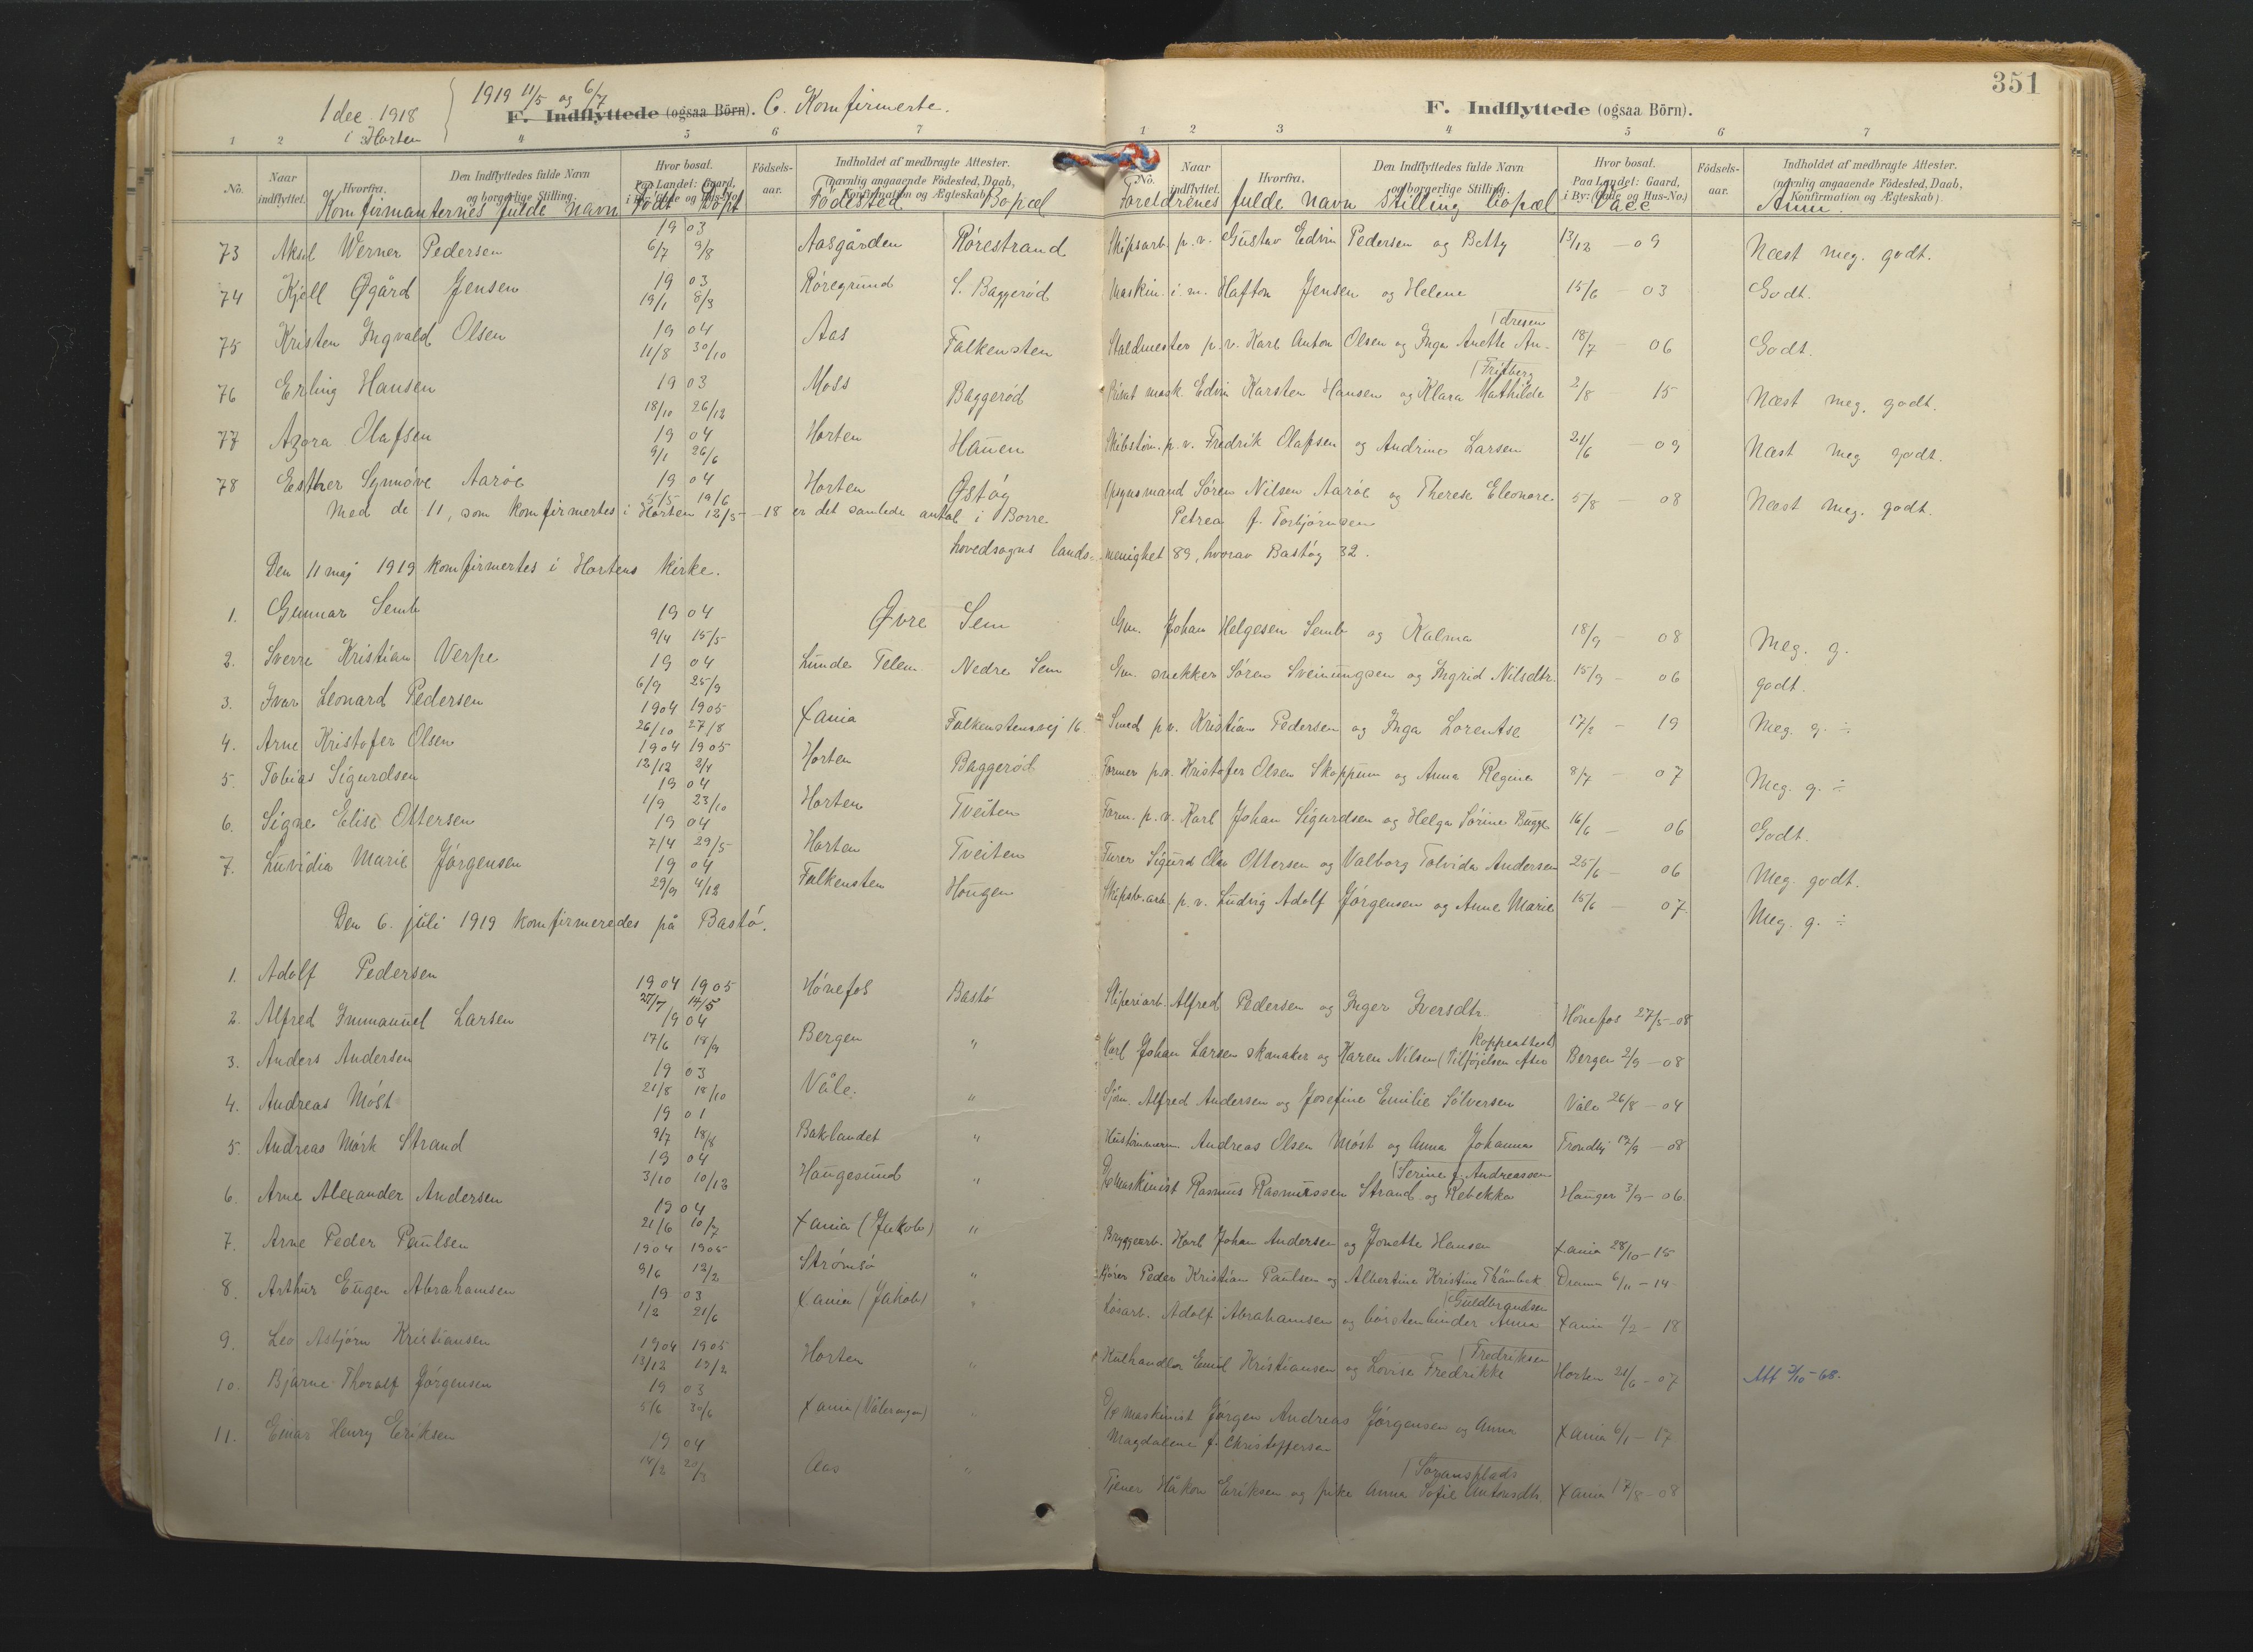 351
1 dec. 1918 i Horten
1919 11/5 og 6/7
F. Indflyttede (ogsaa Börn). C. Konfirmerte.
1 2 3 4 5 6 7
No. Naar indflyttet. Hvorfra. Den Indflyttedes fulde Navn og borgerlige Stilling. Hvor bosat. Paa Landet: Gaard, i By: (Gade og Hus-No.) Fødsels-aar. Indholdet af medbragte Attester. (navnlig angaaende Födested, Daab, Konfirmation og Ægteskab).
Konfirmanternes fulde navn Født Døpt Fødested Bopæl
F. Indflyttede (ogsaa Börn).
1 2 3 4 5 6 7
No. Naar indflyttet. Hvorfra. Den Indflyttedes fulde Navn og borgerlige Stilling. Hvor bosat. Paa Landet: Gaard, i By: (Gade og Hus-No.) Fødsels-aar. Indholdet af medbragte Attester. (navnlig angaaende Födested, Daab, Konfirmation og Ægteskab).
Foreldrenes fulde navn stilling bopæl Vacc Anm.
73 Aksel Werner Pedersen 1903 6/7 9/8 Aasgården Rørestrand Skipsarb. p.v. Gustav Edvin Pedersen og Betty 13/12 - 09 Næst meg. godt.
74 Kjell Øgård Jensen 1903 19/1 8/3 Røregrund S. Baggerød Maskin. i. m. Hafton Jensen og Helene 15/6 - 03 Godt.
75 Kristen Ingvald Olsen 1904 11/8 30/10 Aas Falkensten Staldmester p.v. Karl Anton Olsen og Inga Anette An- (dresen 18/7 - 06 Godt.
76 Erling Hansen 1903 18/10 26/12 Moss Baggerød mask. Edvin Karsten Hansen og Klara Mathilde (Fritberg 2/8 - 15 Næst meg. godt.
77 Azora Olafsen 1904 9/1 26/6 Horten Hauen Skibstøm. p.v. Fredrik Olafsen og Andrine Larsen 21/6 - 09 Næst meg godt.
78 Esther Synnøve Aarøe 1904 5/5 19/6 Horten Østøy Opsynsmand Søren Nilsen Aarøe og Therese Eleonore Petrea f. Torbjørnsen 5/8 - 08 Næst meg. godt.
Med de 11, som konfirmertes i Horten 12/5 - 18 er det samlede antal i Borre
hovedsogns lands- menighet 89, hvorav Bastøy 32.
Den 11 maj 1919 konfirmertes i Hortens kirke.
1. Gunnar Semb 1904 9/4 15/5 Øvre Sem Gm. Johan Helgesen Semb og Kalma 18/9 - 08 Meg. g.
2. Sverre Kristian Verpe 1904 6/9 25/9 Lunde Telem. Nedre Sem Gm. snekker Søren Sveinungsen og Ingrid Nilsdtr. 15/9 - 06 godt.
3. Ivar Leonard Pedersen 1904 1905 26/10 27/8 Xania Falkenstensvej 16 Smed p.v. Kristian Pedersen og Inga Lorentse 17/2 - 19 Meg. g. ÷
4. Arne Kristofer Olsen 1904 1905 12/12 2/4 Horten Baggerød Former p.v. Kristofer Olsen Skoppum og Anna Regine 8/7 - 07 Meg. g. ÷
5. Tobias Sigurdsen 1904 1/9 23/10 Horten Tveiten Form. p.v. Karl Johan Sigurdsen og Helga Sørine Bugge 16/6 - 06 Godt.
6. Signe Elise Ottersen 1904 7/4 29/5 Horten Tveiten Furer Sigurd Olav Ottersen og Valborg Tolvida Andersen 25/6 - 06 Meg. godt.
7. Luvidia Marie Jørgensen 1904 29/9 4/12 Falkensten Hougen Skipsb.arb. p.v. Ludvig Adolf Jørgensen og Anne Marie 15/6 - 07. Meg. g. ÷
Den 6. juli 1919 konfirmeredes på Bastø.
1. Adolf Pedersen 1904 1905 27/7 14/5 Hønefos Bastø Sliperiarb. Alfred Pedersen og Inger Iversdtr. Hønefos 27/5-08
2. Alfred Immanuel Larsen 1904 17/6 18/9 Bergen " Karl Johan Larsen skomaker og Karen Nilsen (Tilføjelsen efter koppeattest) Bergen 2/9-08
3. Anders Andersen 1903 21/8 18/10 Våle. " Sjøm. Alfred Andersen og Josefine Emilie Sølversen Våle 26/8-04
4. Andreas Møst 1901 9/7 18/8 Baklandet " Hustømmerm. Andreas Olsen Møst og Anna Johanna Trondhj 17/9-08
5. Andreas Mørk Strand 1904 3/10 10/12 Haugesund " D/s Maskinist Rasmus Rasmussen Strand og Rebekka (Serine f. Andreassen Hauger 3/9-06.
6. Arne Alexander Andersen 1904 21/6 10/7 Xania (Jakob) " Bryggearb. Karl Johan Andersen og Jonette Hansen Xania 28/10-15
7. Arne Peder Paulsen 1904 1905 9/6 12/2 Strømsø " Kjører Peder Kristian Paulsen og Albertine Kristine Dramm 6/11-14
8. Arthur Eugen Abrahamsen 1903 1/2 21/6 Xania (Jakob) " Løsarb. Adolf Abrahamsen og børstenbinder Anna (Guldbrandsen Xania 1/2-18
9. Leo Asbjørn Kristiansen 1904 1905 13/12 12/2 Horten " Kulhandler Emil Kristiansen og Lovise Fredrikke (Fredriksen Horten 21/6-07 Att 3/10-68.
10. Bjarne Thoralf Jørgensen 1903 5/6 30/6 Xania (Vålerengen) " D/s Maskinist Jørgen Andreas Jørgensen og Anna Magdalene f. Christoffersen Xania 6/1-17
11. Einar Henry Eriksen 1904 14/2 20/3 Aas " Tjener Håkon Eriksen og pike Anna Sofie Antonsdtr. (Søransplads Xania 17/8-08